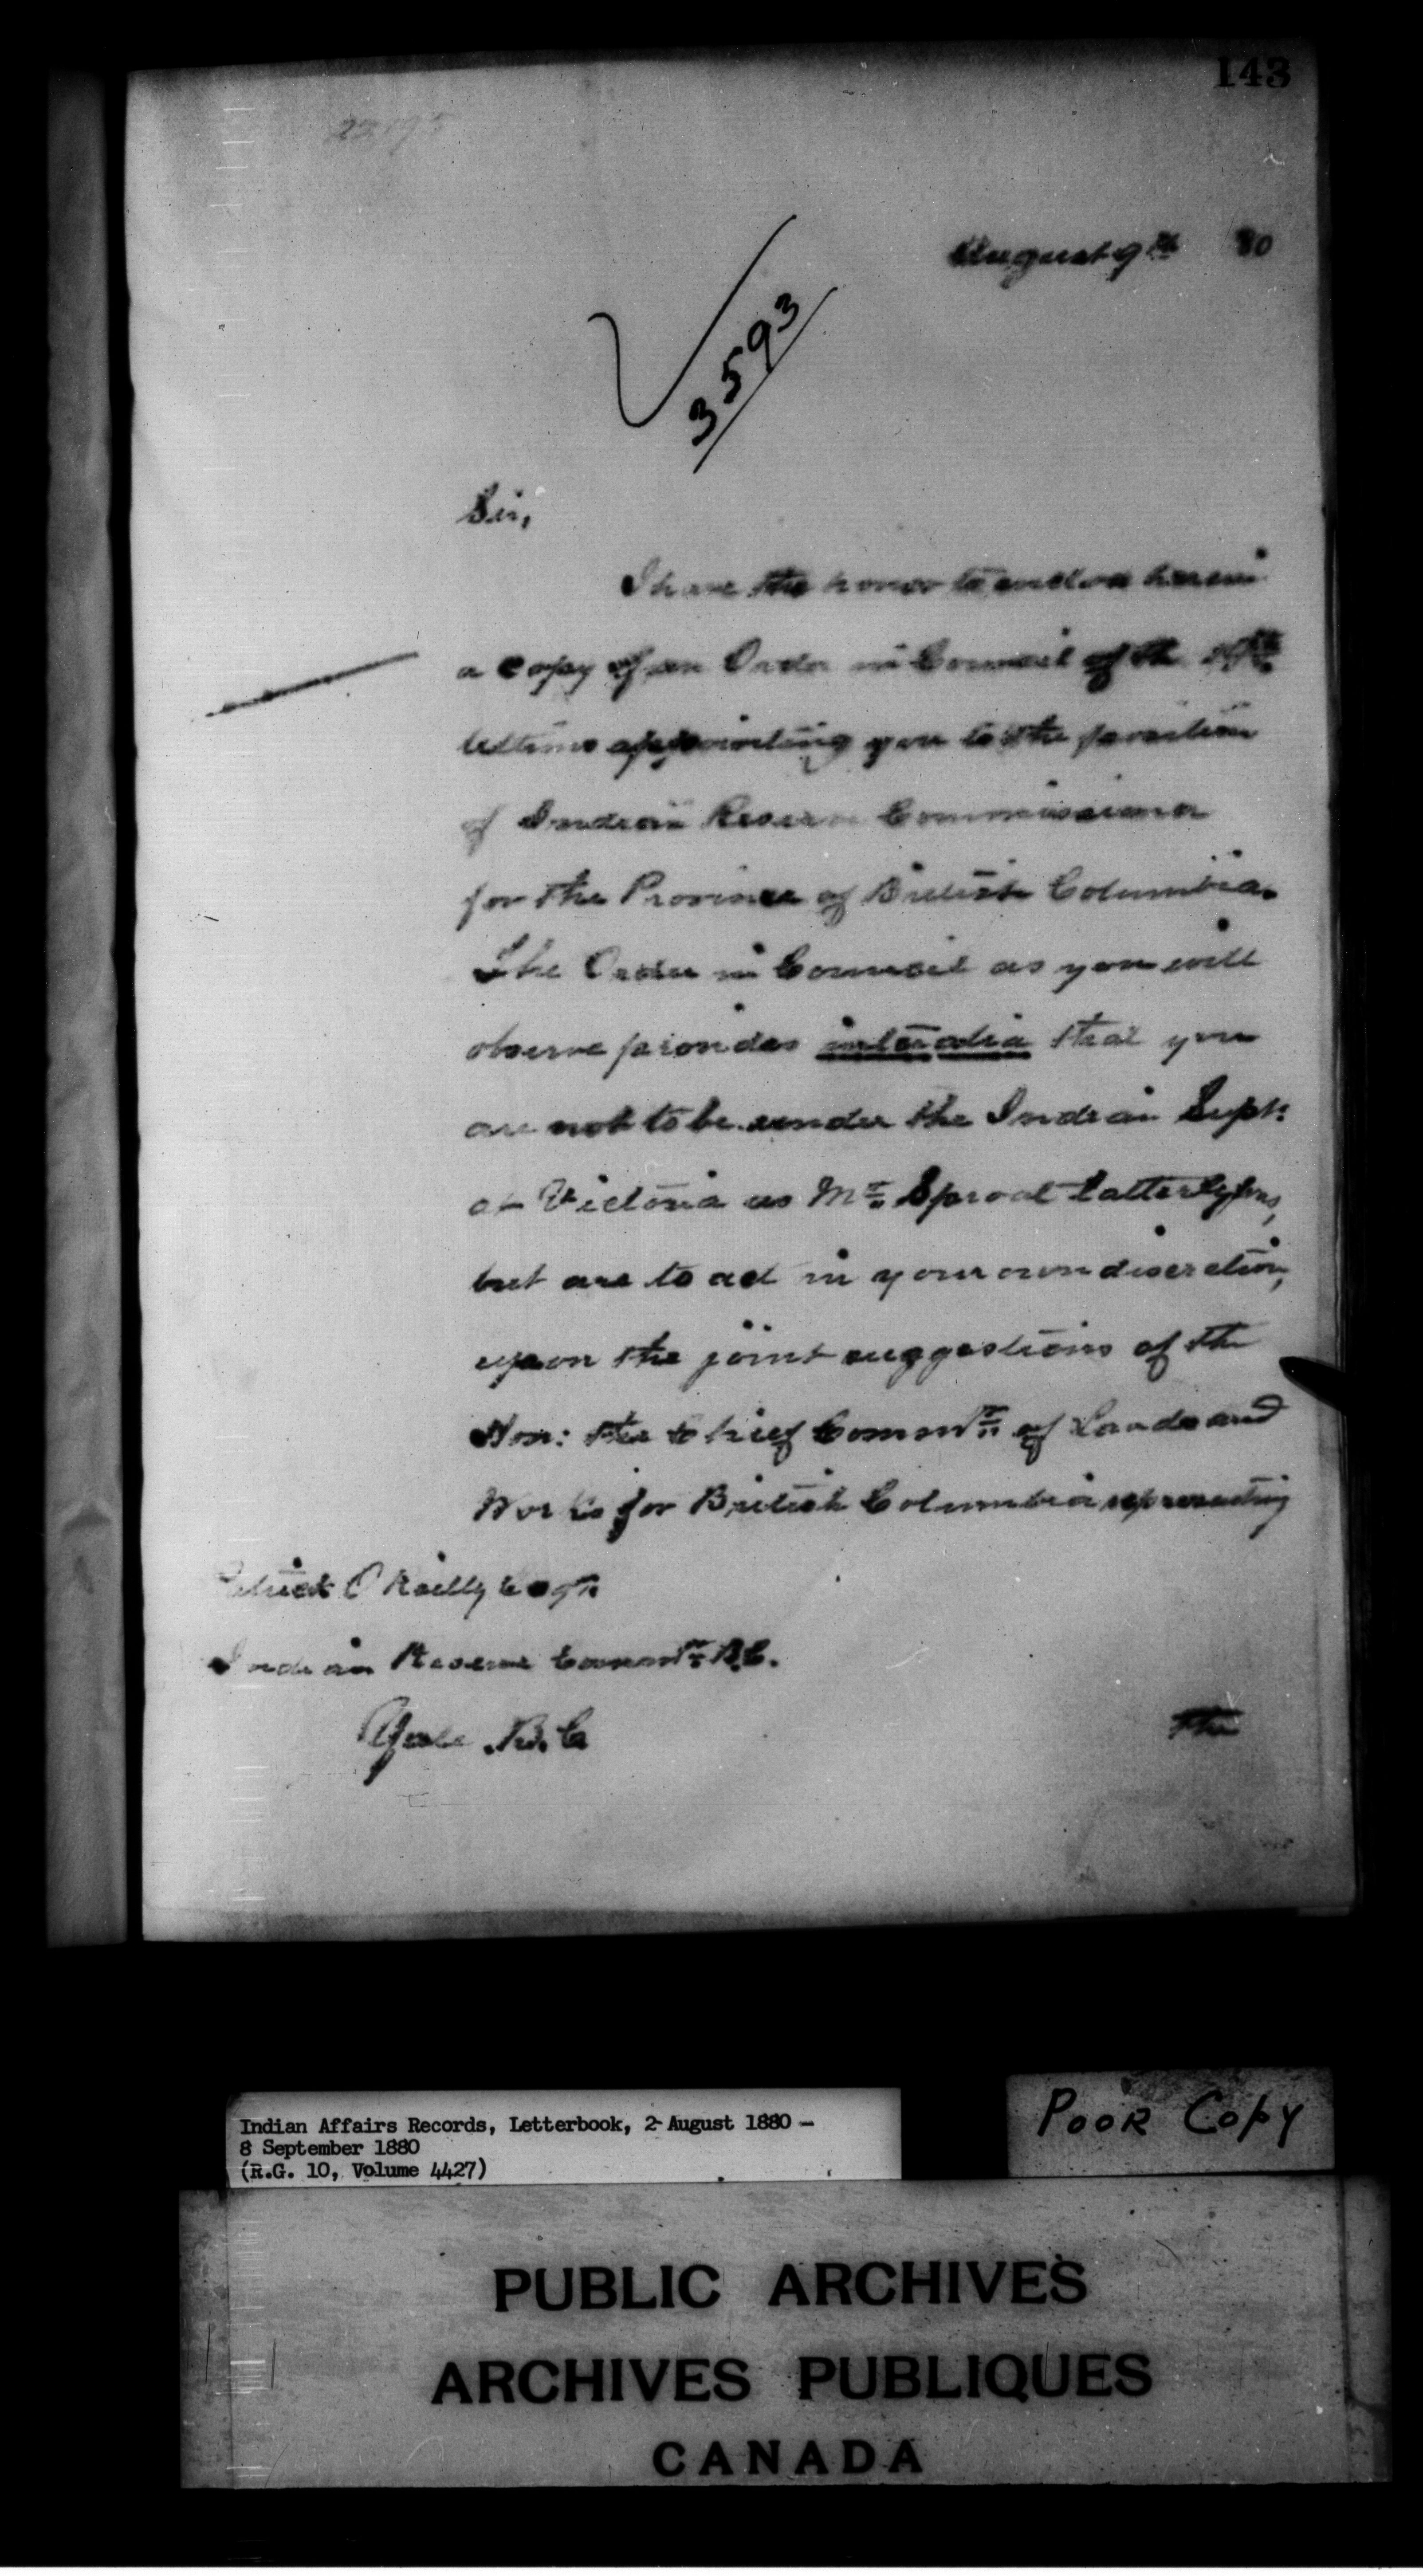 143
August 9th 80
3593
Sir,
I have the honor to enclose herein
a copy of an Order in Council of the
ultimo appointing you to the position
of Indian Reserve Commissioner
for the Province of British Columbia.
The Order in Council as you will
observe provides inter alia that you
are not to be under the Indian Supt:
at Victoria as Mr. Sproat latterly was,
but are to act in your own discretion,
upon the joint suggestions of the
Hon: the Chief Commr. of Lands and
Works for British Columbia representing
Patrick O'Reilly Esqr.
Indian Reserve Commr. B.C.
Yale. B.C
the
Indian Affairs Records, Letterbook, 2 August 1880 –
8 September 1880
(R.G. 10, Volume 4427)
POOR COPY
PUBLIC ARCHIVES
ARCHIVES PUBLIQUES
CANADA